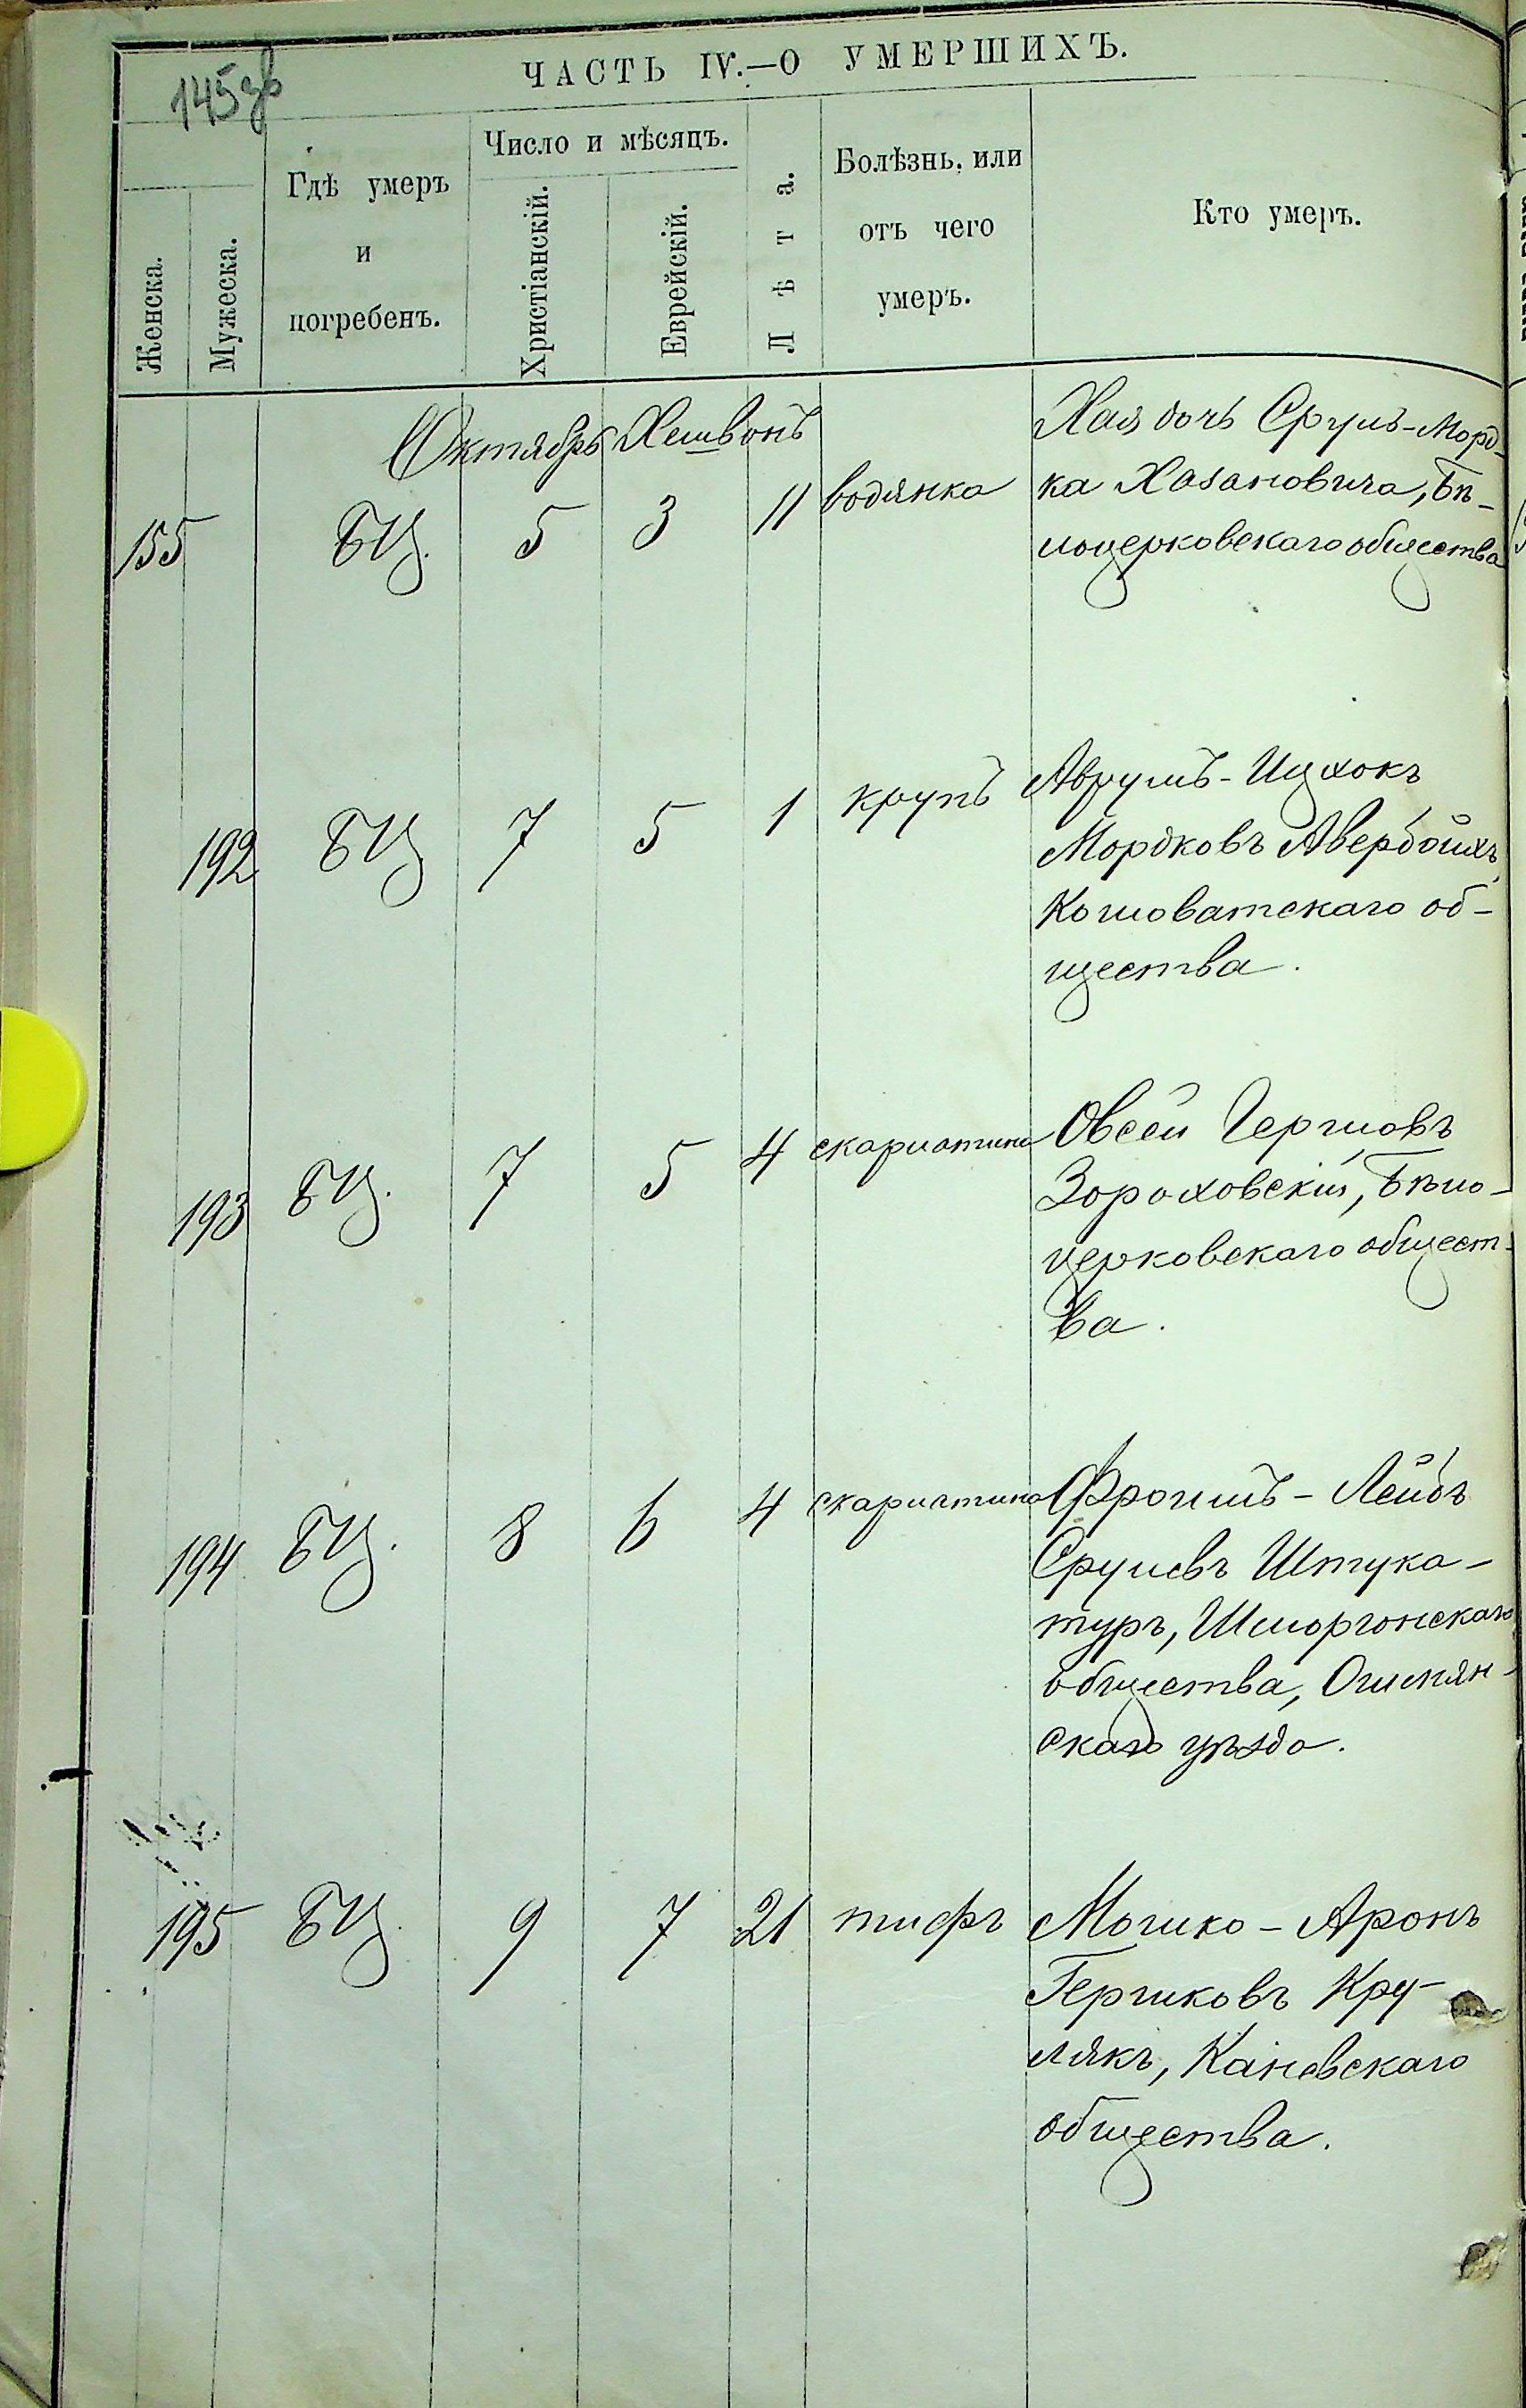 145зв
ЧАСТЬ IV.—О УМЕРШИХЪ.
Женска.
Мужеска.
Гдѣ умеръ
и
погребенъ.
Число и мѣсяцъ.
Христіанскій.
Еврейскій.
Лѣта.
Болѣзнь, или
отъ чего
умеръ.
Кто умеръ.
Октябрь Хешвонъ
155 БЦ. 5 3 11 водянка
Хая дочь Сруль-Морд-
ка Хазановича, Бѣ-
лоцерковскаго общества
192 БЦ 7 5 1 крупъ
Аврумъ-Ицхокъ
Мордковъ Авербойхъ,
Кошоватскаго об-
щества.
193 БЦ. 7 5 4 скарлатина
Овсей Гершовъ
Зороховскій, Бѣло-
церковскаго общест-
ва.
194 БЦ. 8 6 4 скарлатина
Фроимъ-Лейбъ
Срулевъ Штука-
туръ, Шморгонскаго
общества, Ошмян-
скаго уѣзда.
195 БЦ. 9 7 21 тифъ
Мошко-Аронъ
Гершковъ Кру-
лякъ, Каневскаго
общества.